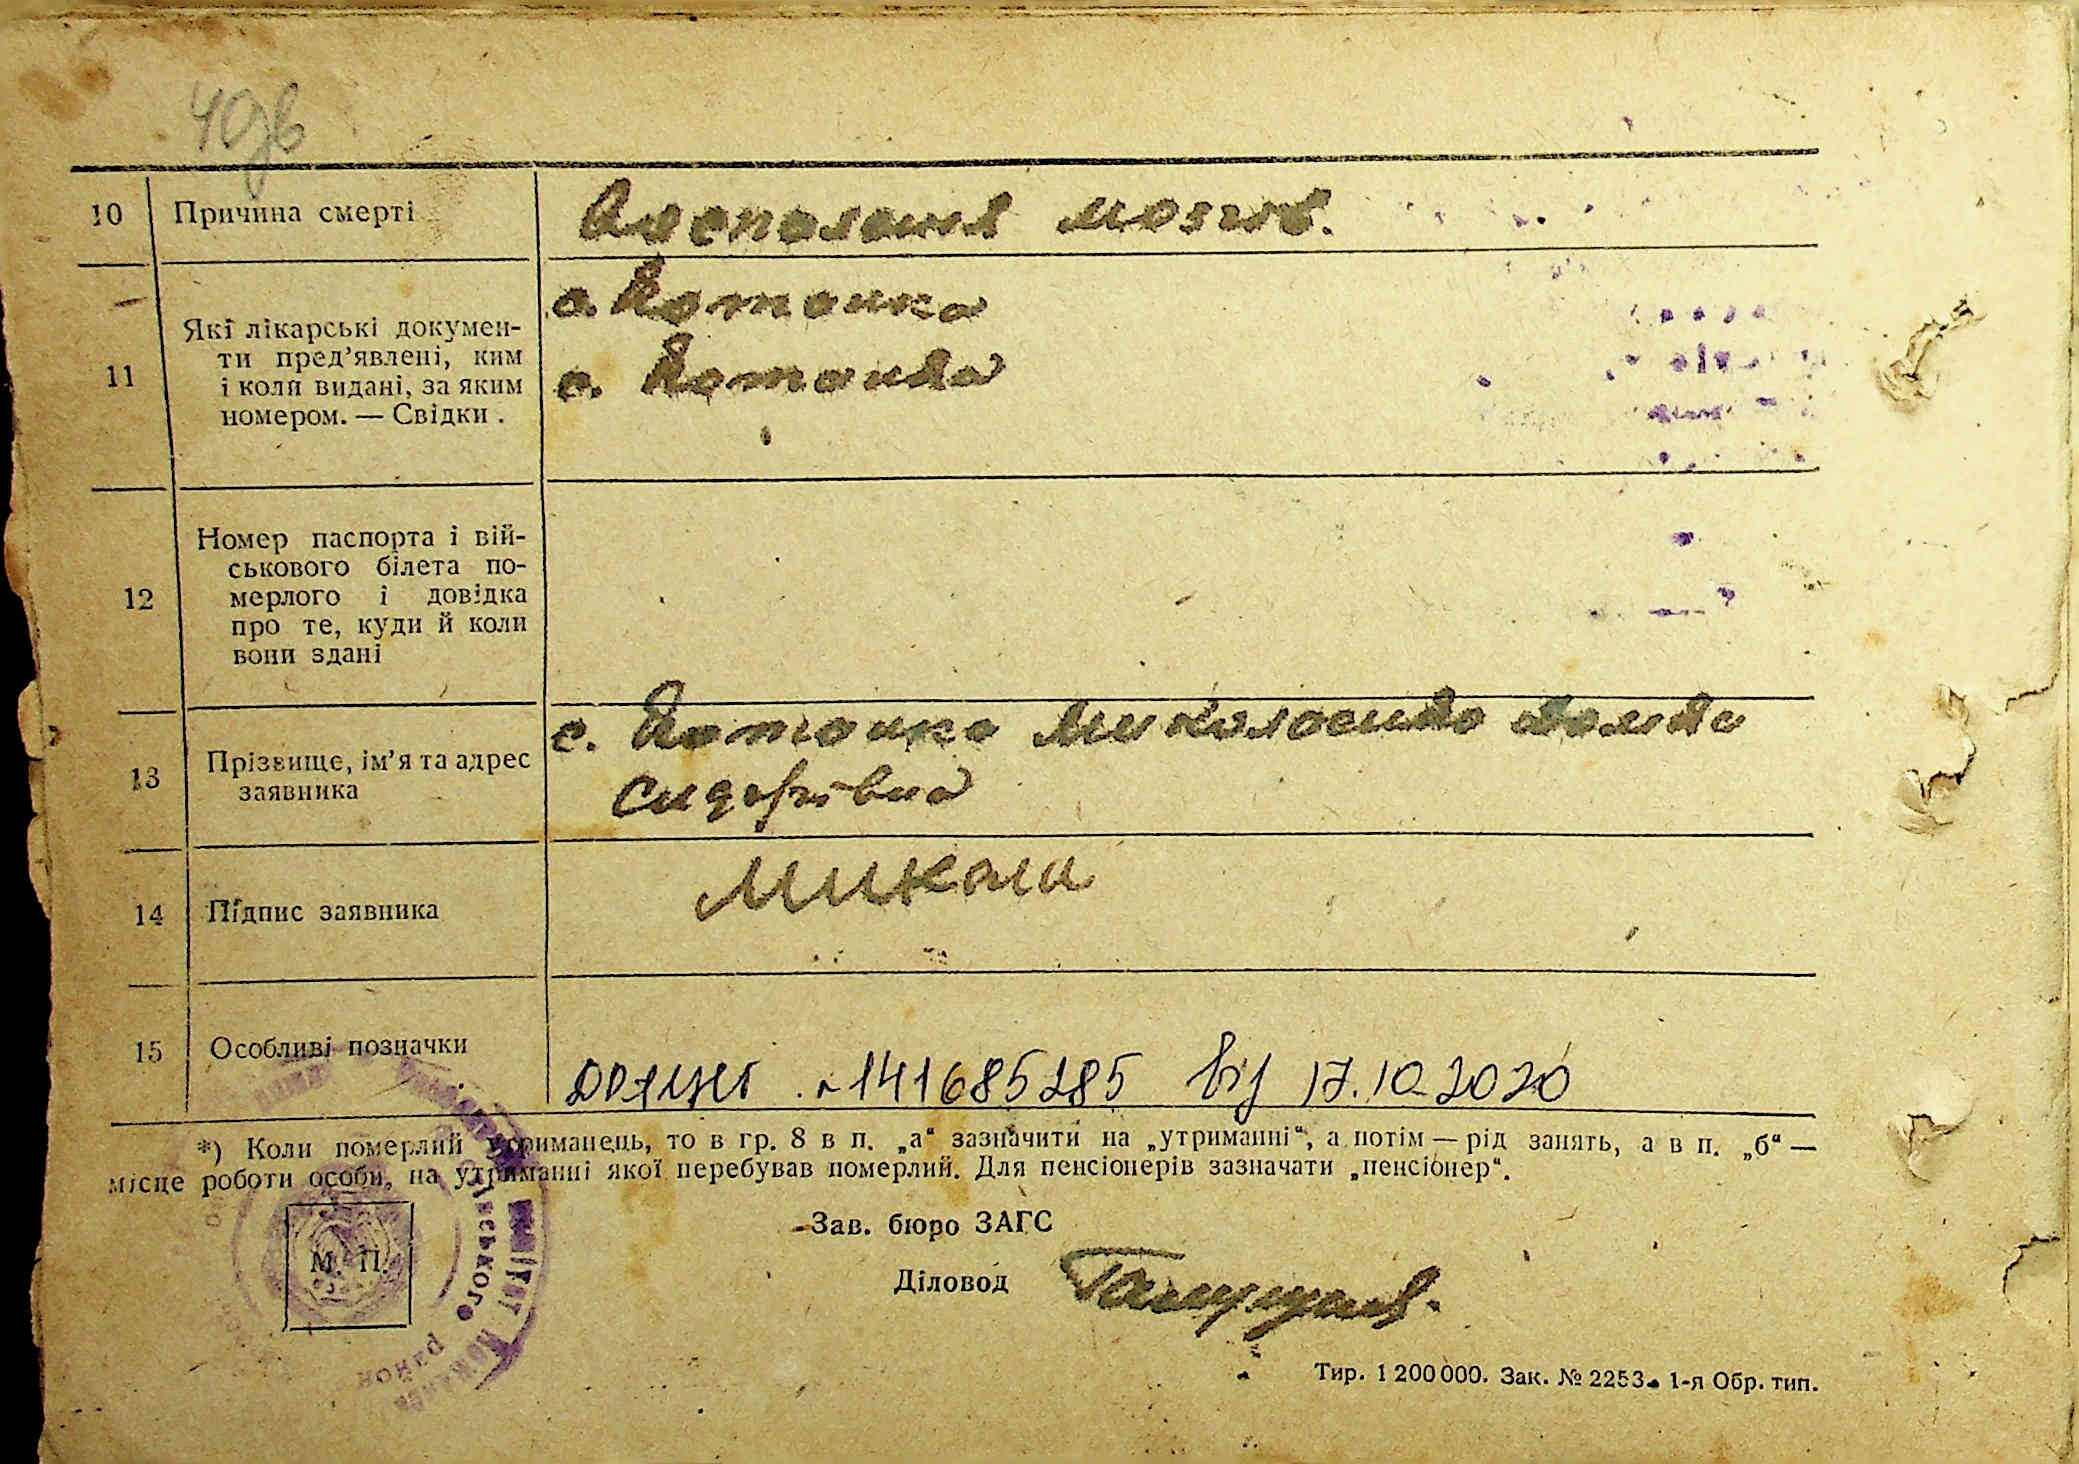 40зв
10 Причина смерті
мозгів.
11 Які лікарські докумен-
ти пред’явлені, ким
і коли видані, за яким
номером. — Свідки .
с.
с.
12 Номер паспорта і вій-
ськового білета по-
мерлого і довідка
про те, куди й коли
вони здані
13 Прізвище, ім’я та адрес
заявника
с.
Сидорівна
14 Підпис заявника
Микола
15 Особливі позначки
141685285 від 17.10.2020
*) Коли померлий утриманець, то в гр. 8 в п. „а“ зазначити на „утриманні“, а потім — рід занять, а в п. „б“ —
місце роботи особи, на утриманні якої перебував померлий. Для пенсіонерів зазначати „пенсіонер“.
М. П.
Зав. бюро ЗАГС
Діловод
Тир. 1 200 000. Зак. № 2253. 1-я Обр. тип.